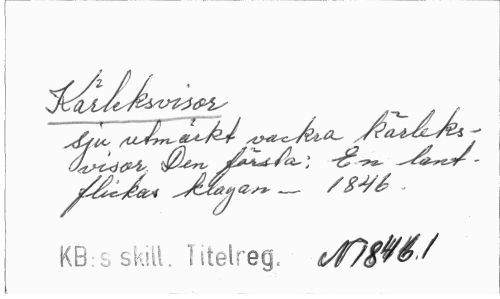 Kärleksvisor
sju utmärkt vackra kärleks-
visor. Den första: En lant-
flickas klagan — 1846.
KB:s skill. Titelreg. N1846.1